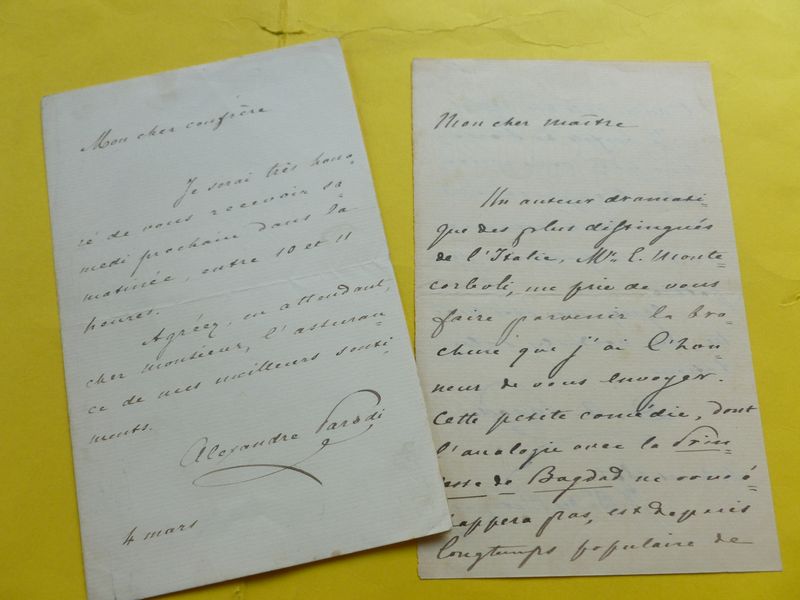 Mon cher confrère
Je serai très hono-
ré de vous recevoir sa-
medi prochain dans la
matinée, entre 10 et 11
heures.
Agréez, en attendant,
cher monsieur, l'assuran-
ce de mes meilleurs senti-
ments.
Alexandre Parodi
4 mars
Mon cher maître
Un auteur dramati-
que des plus distingués
de l'Italie, Mr. E. Monte-
corboli, me prie de vous
faire parvenir la bro-
chure que j'ai l'hon-
neur de vous envoyer.
Cette petite comédie, dont
l'analogie avec la Prin-
cesse de Bagdad ne vous é-
chappera pas, est depuis
longtemps populaire de